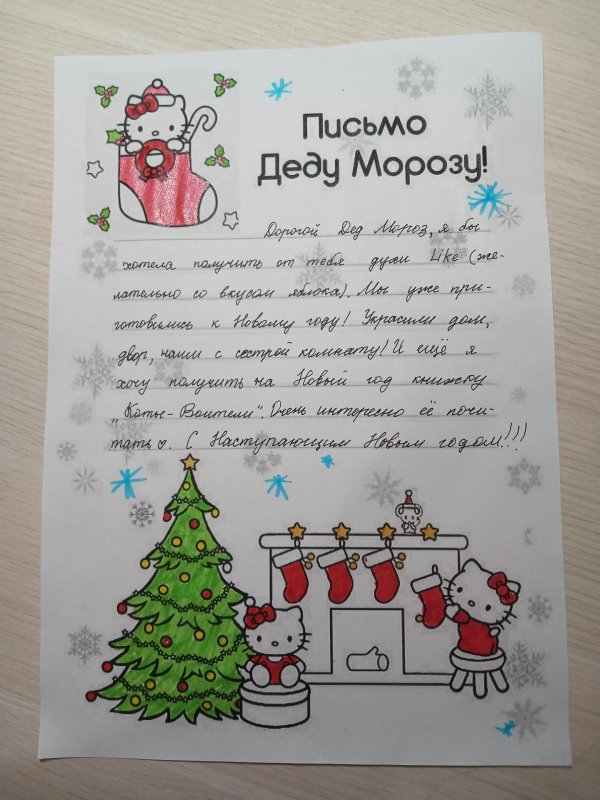 Письмо
Деду Морозу!
Дорогой Дед Мороз, я бы
хотела получить от тебя духи Like (же-
лательно со вкусом яблока). Мы уже при-
готовились к Новому году! Украсили дом,
двор, наши с сестрой комнату! И ещё я
хочу получить на Новый год книжку
"Коты-Воители". Очень интересно её почи-
тать♡. С Наступающим Новым годом!!!